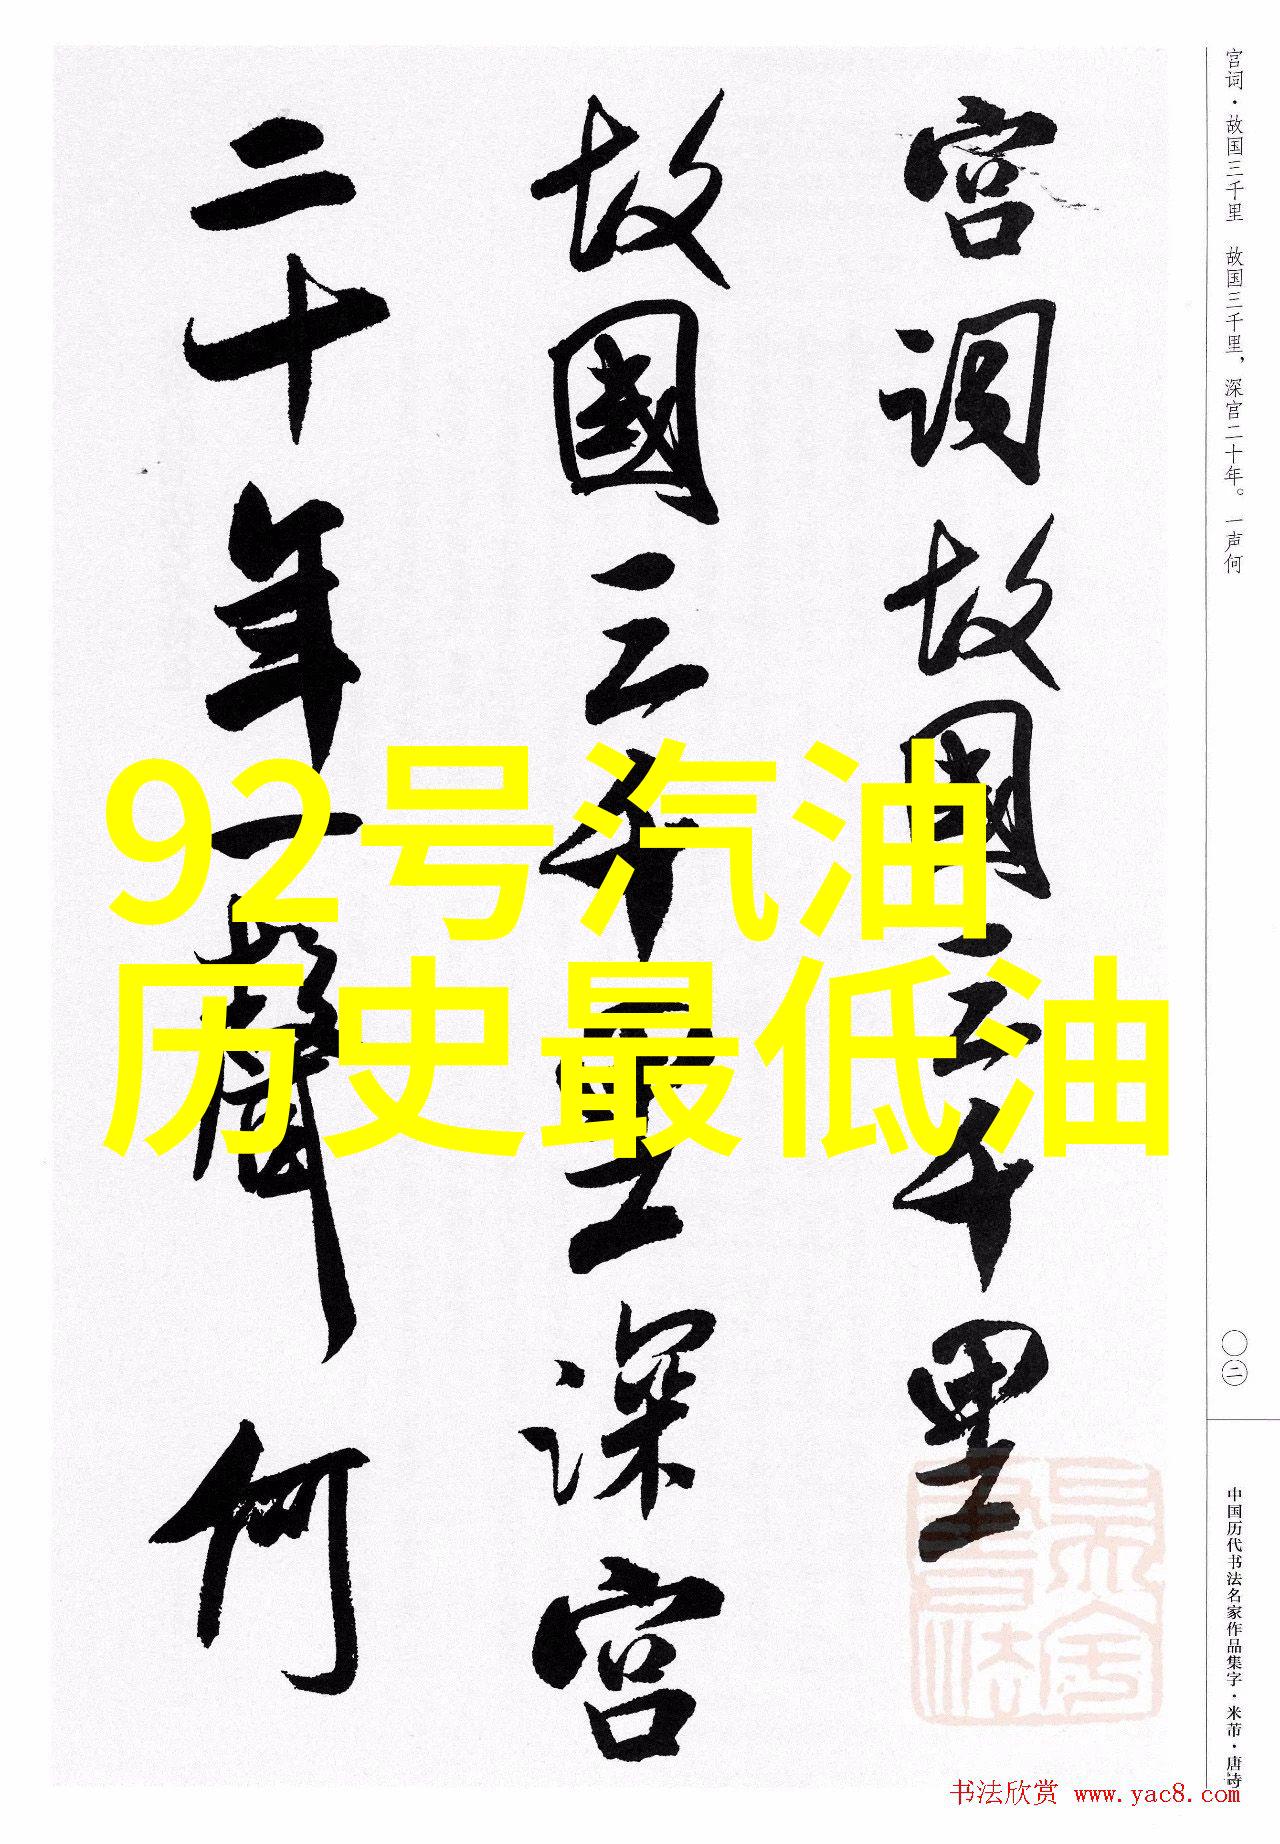 宫词故国三千里
故國三千里深宫
二十年一聲何
92号汽油
历史最低油
宫词·故国三千里 故国三千里，深宫二十年。一声何
〇二
中国历代书法名家作品集字·米芾·唐诗
书法欣赏 www.yac8.com